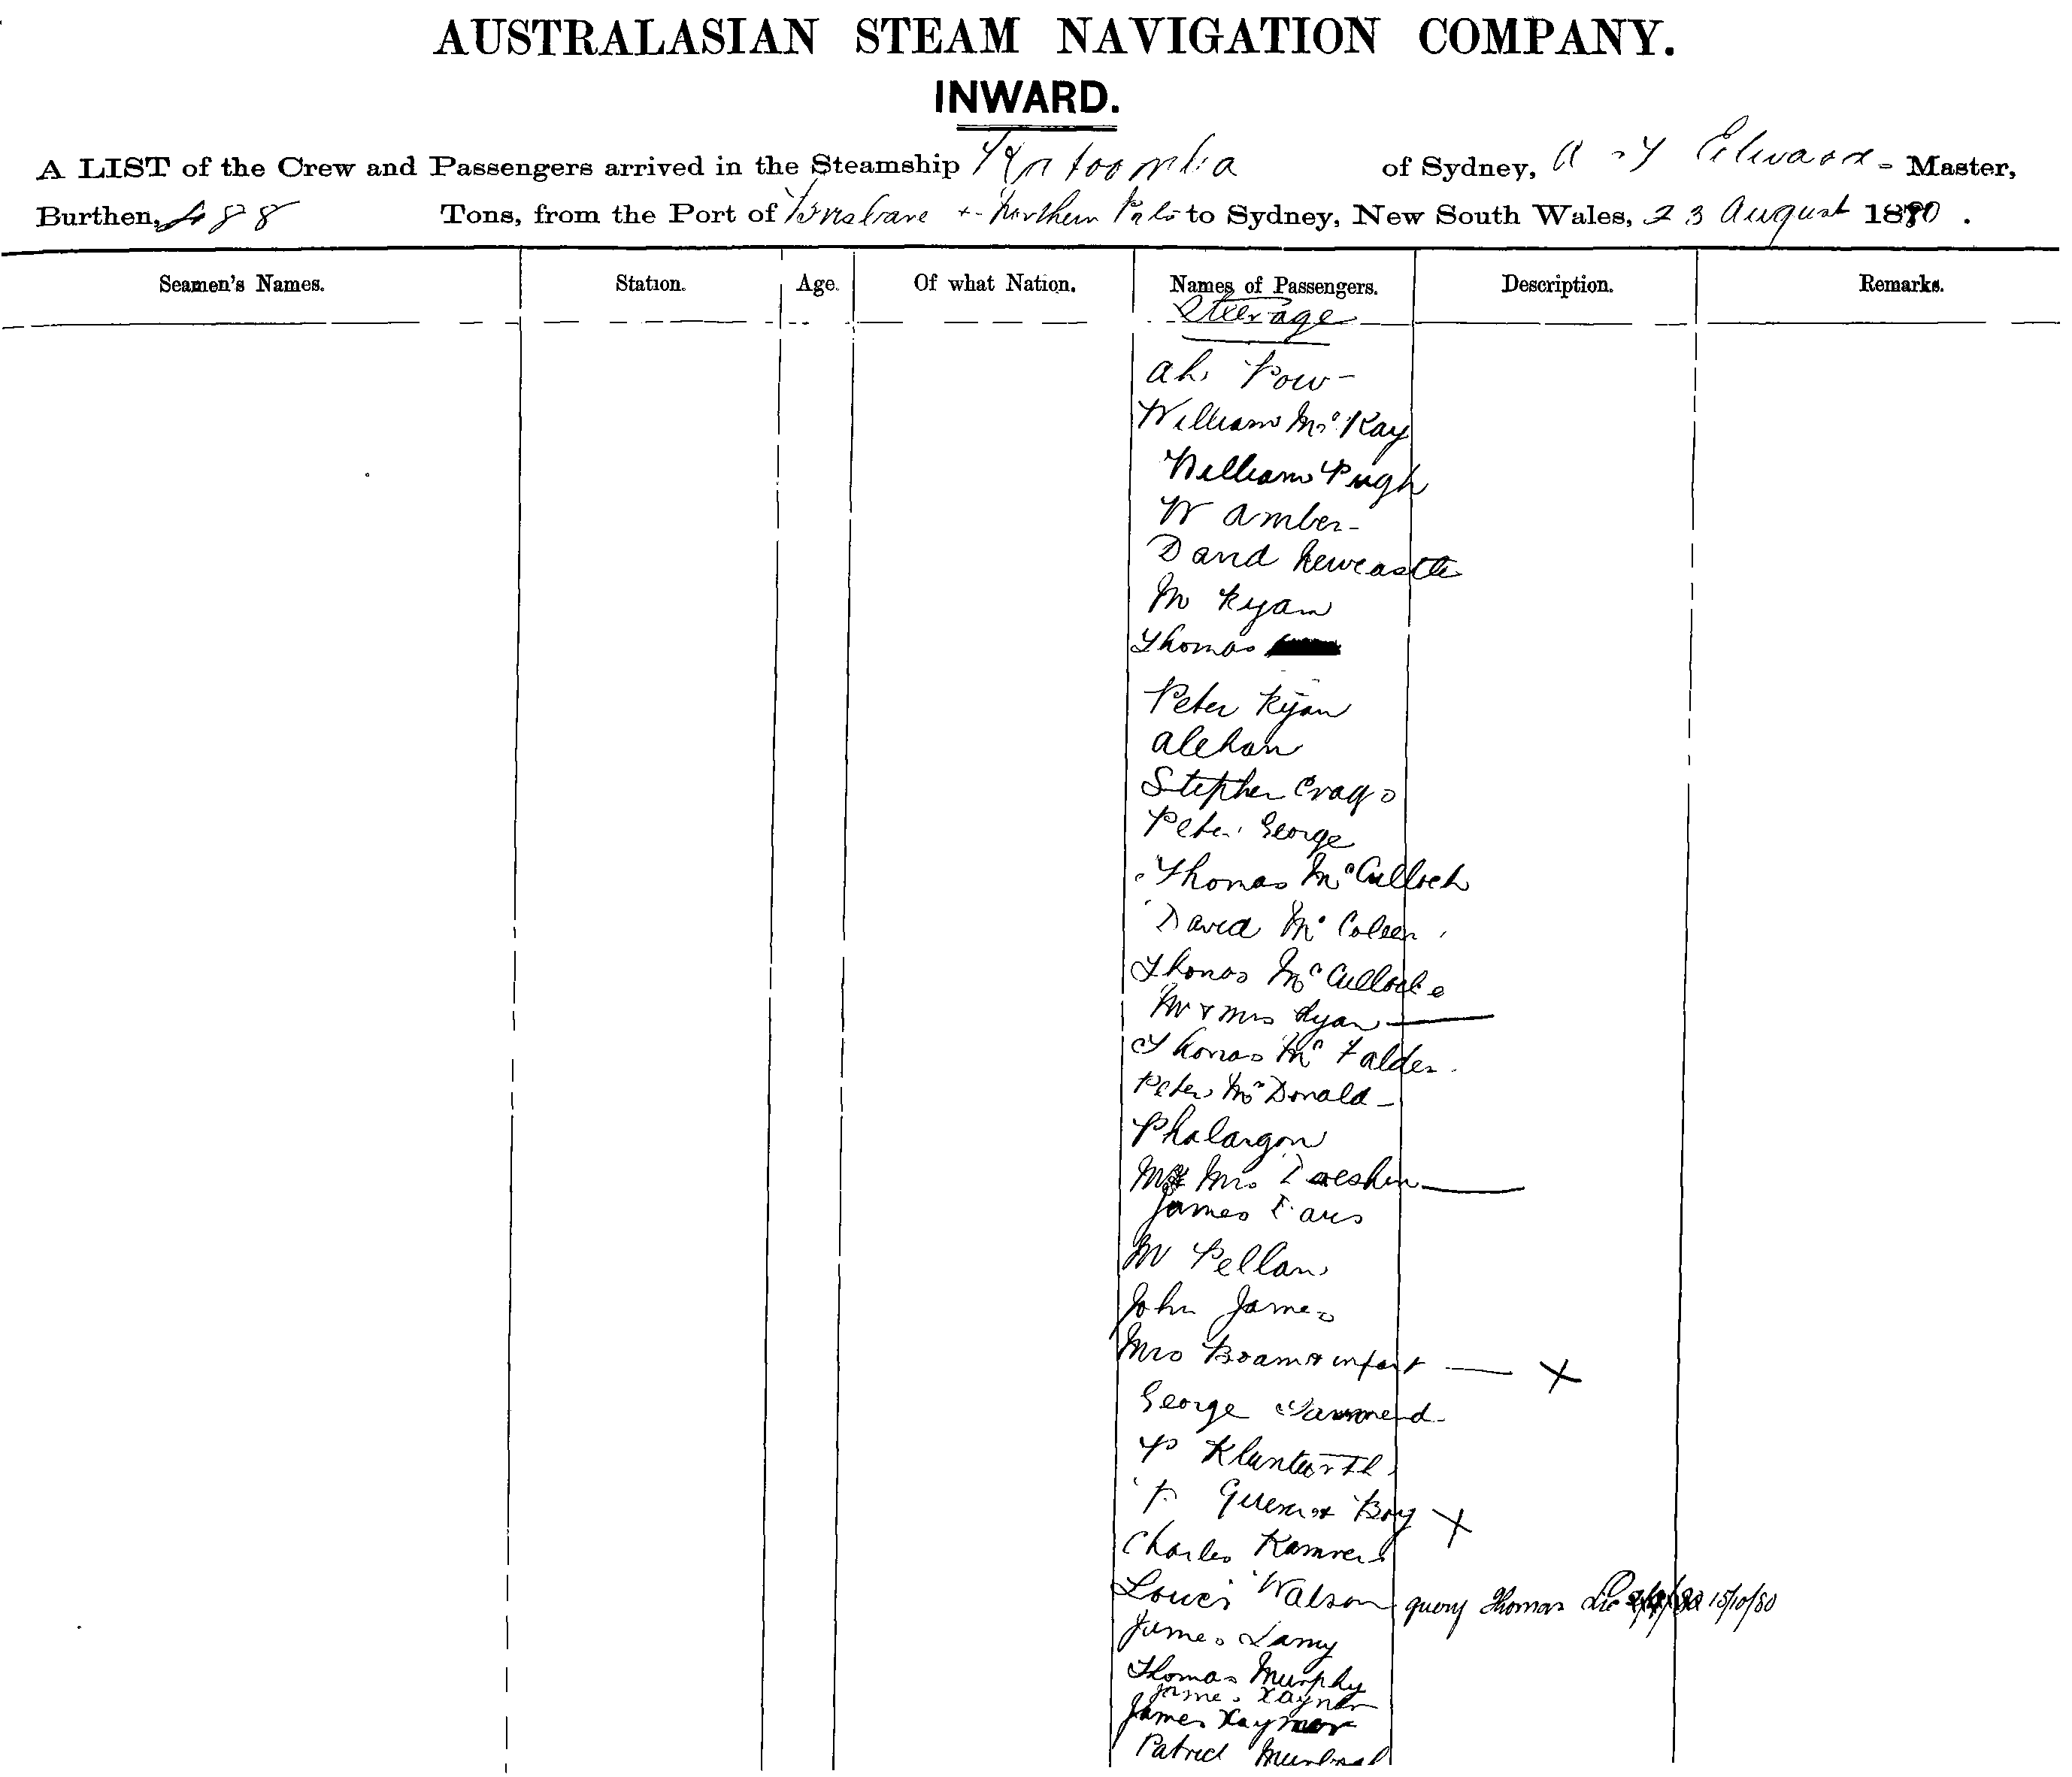 AUSTRALASIAN STEAM NAVIGATION COMPANY.
INWARD.
A LIST of the Crew and Passengers arrived in the Steamship Katoomba of Sydney, Master,
Burthen, 488 Tons, from the Port of Brisbane + Northern Pts to Sydney, New South Wales, 23 August 1880.
Seamen's Names. Station. Age. Of what Nation. Names of Passengers. Description. Remarks.
Steerage
Ah Pow
William McKay
William Pugh
W Amber
David Newcastle
M Ryan
Thomas
Peter Ryan
Alehan
Stephen Crago
Peter George
Thomas McCulloch
David McColeen
Thomas McCulloch
Mr & Mrs Ryan
Thomas McFalden
Peter McDonald
Phalargon
Mr & Mrs
James
M Pellan
John James
Mrs Boam & infant X
George
P Klunteorth
Boy X
Charles
Louci Watson query Thomas 15/10/80
James Lamy
Thomas Murphy
James Raynor
James Raymor
Patrick